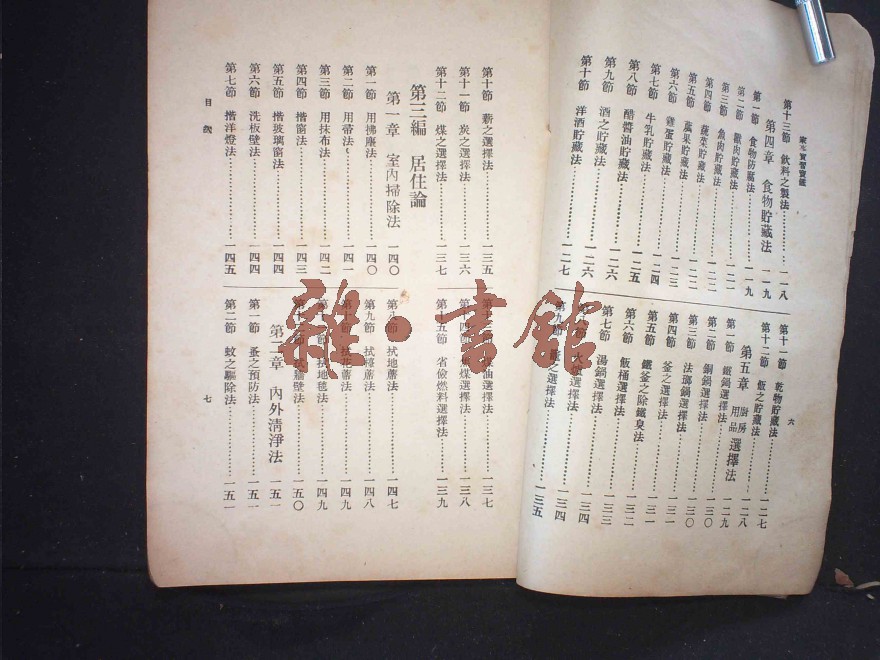 家事實習寶鑑
第十三節 飲料之製法………一一八
第四章 食物貯藏法 一一九
第一節 食物防腐法………一一九
第二節 獸肉貯藏法………一二一
第三節 魚肉貯藏法………一二二
第四節 蔬菜貯藏法………一二二
第五節 蔬果貯藏法………一二三
第六節 雞蛋貯藏法………一二三
第七節 牛乳貯藏法………一二四
第八節 醋醬油貯藏法………一二五
第九節 酒之貯藏法………一二六
第十節 洋酒貯藏法………一二七
第十一節 乾物貯藏法………一二七
第十二節 飯之貯藏法………一二八
第五章 廚房用品選擇法
第一節 鐵鍋選擇法………一二九
第二節 銅鍋選擇法………一三〇
第三節 法瑯鍋選擇法………一三〇
第四節 釜之選擇法………一三一
第五節 鐵釜之除鐵臭法………一三一
第六節 飯桶選擇法………一三二
第七節 湯鍋選擇法………一三三
選擇法………一三四
第九節 之選擇法………一三五
六
第十節 薪之選擇法………一三五
第十一節 炭之選擇法………一三六
第十二節 煤之選擇法………一三七
第三編 居住論
第一章 室內掃除法 一四〇
第一節 用拂塵法………一四〇
第二節 用帚法………一四一
第三節 用抹布法………一四二
第四節 揩窗法………一四三
第五節 揩玻璃窗法………一四四
第六節 洗板壁法………一四四
第七節 揩洋燈法………一四五
油選擇法………一三七
煤選擇法………一三八
第十五節 省儉燃料選擇法………一三九
第八節 拭地蓆法………一四七
第九節 拭籐蓆法………一四八
蓆法………一四九
拭地毯法………一四九
拭牆壁法………一五〇
第二章 內外清淨法 一五一
第一節 蚤之預防法………一五一
第二節 蚊之驅除法………一五一
目次
七
雜·書館